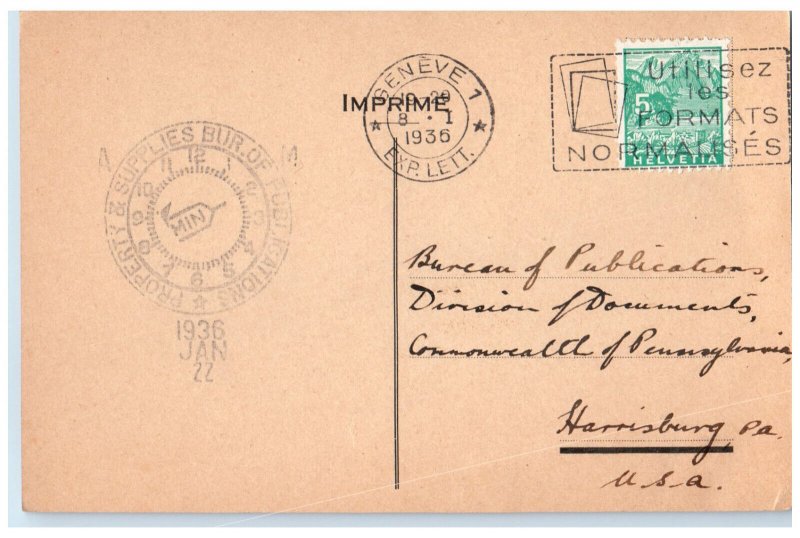 IMPRIMÉ
GENÈVE 1
8 · I
1936
EXP. LETT.
Utilisez
les
FORMATS
NORMALISÉS
5
HELVETIA
A M
PROPERTY & SUPPLIES BUR. OF PUBLICATIONS
12 1 2 3 4 5 6 7 8 9 10 11
MIN
1936
JAN
22
Bureau of Publications,
Division of Documents,
Commonwealth of Pennsylvania,
Harrisburg Pa.
U.S.A.